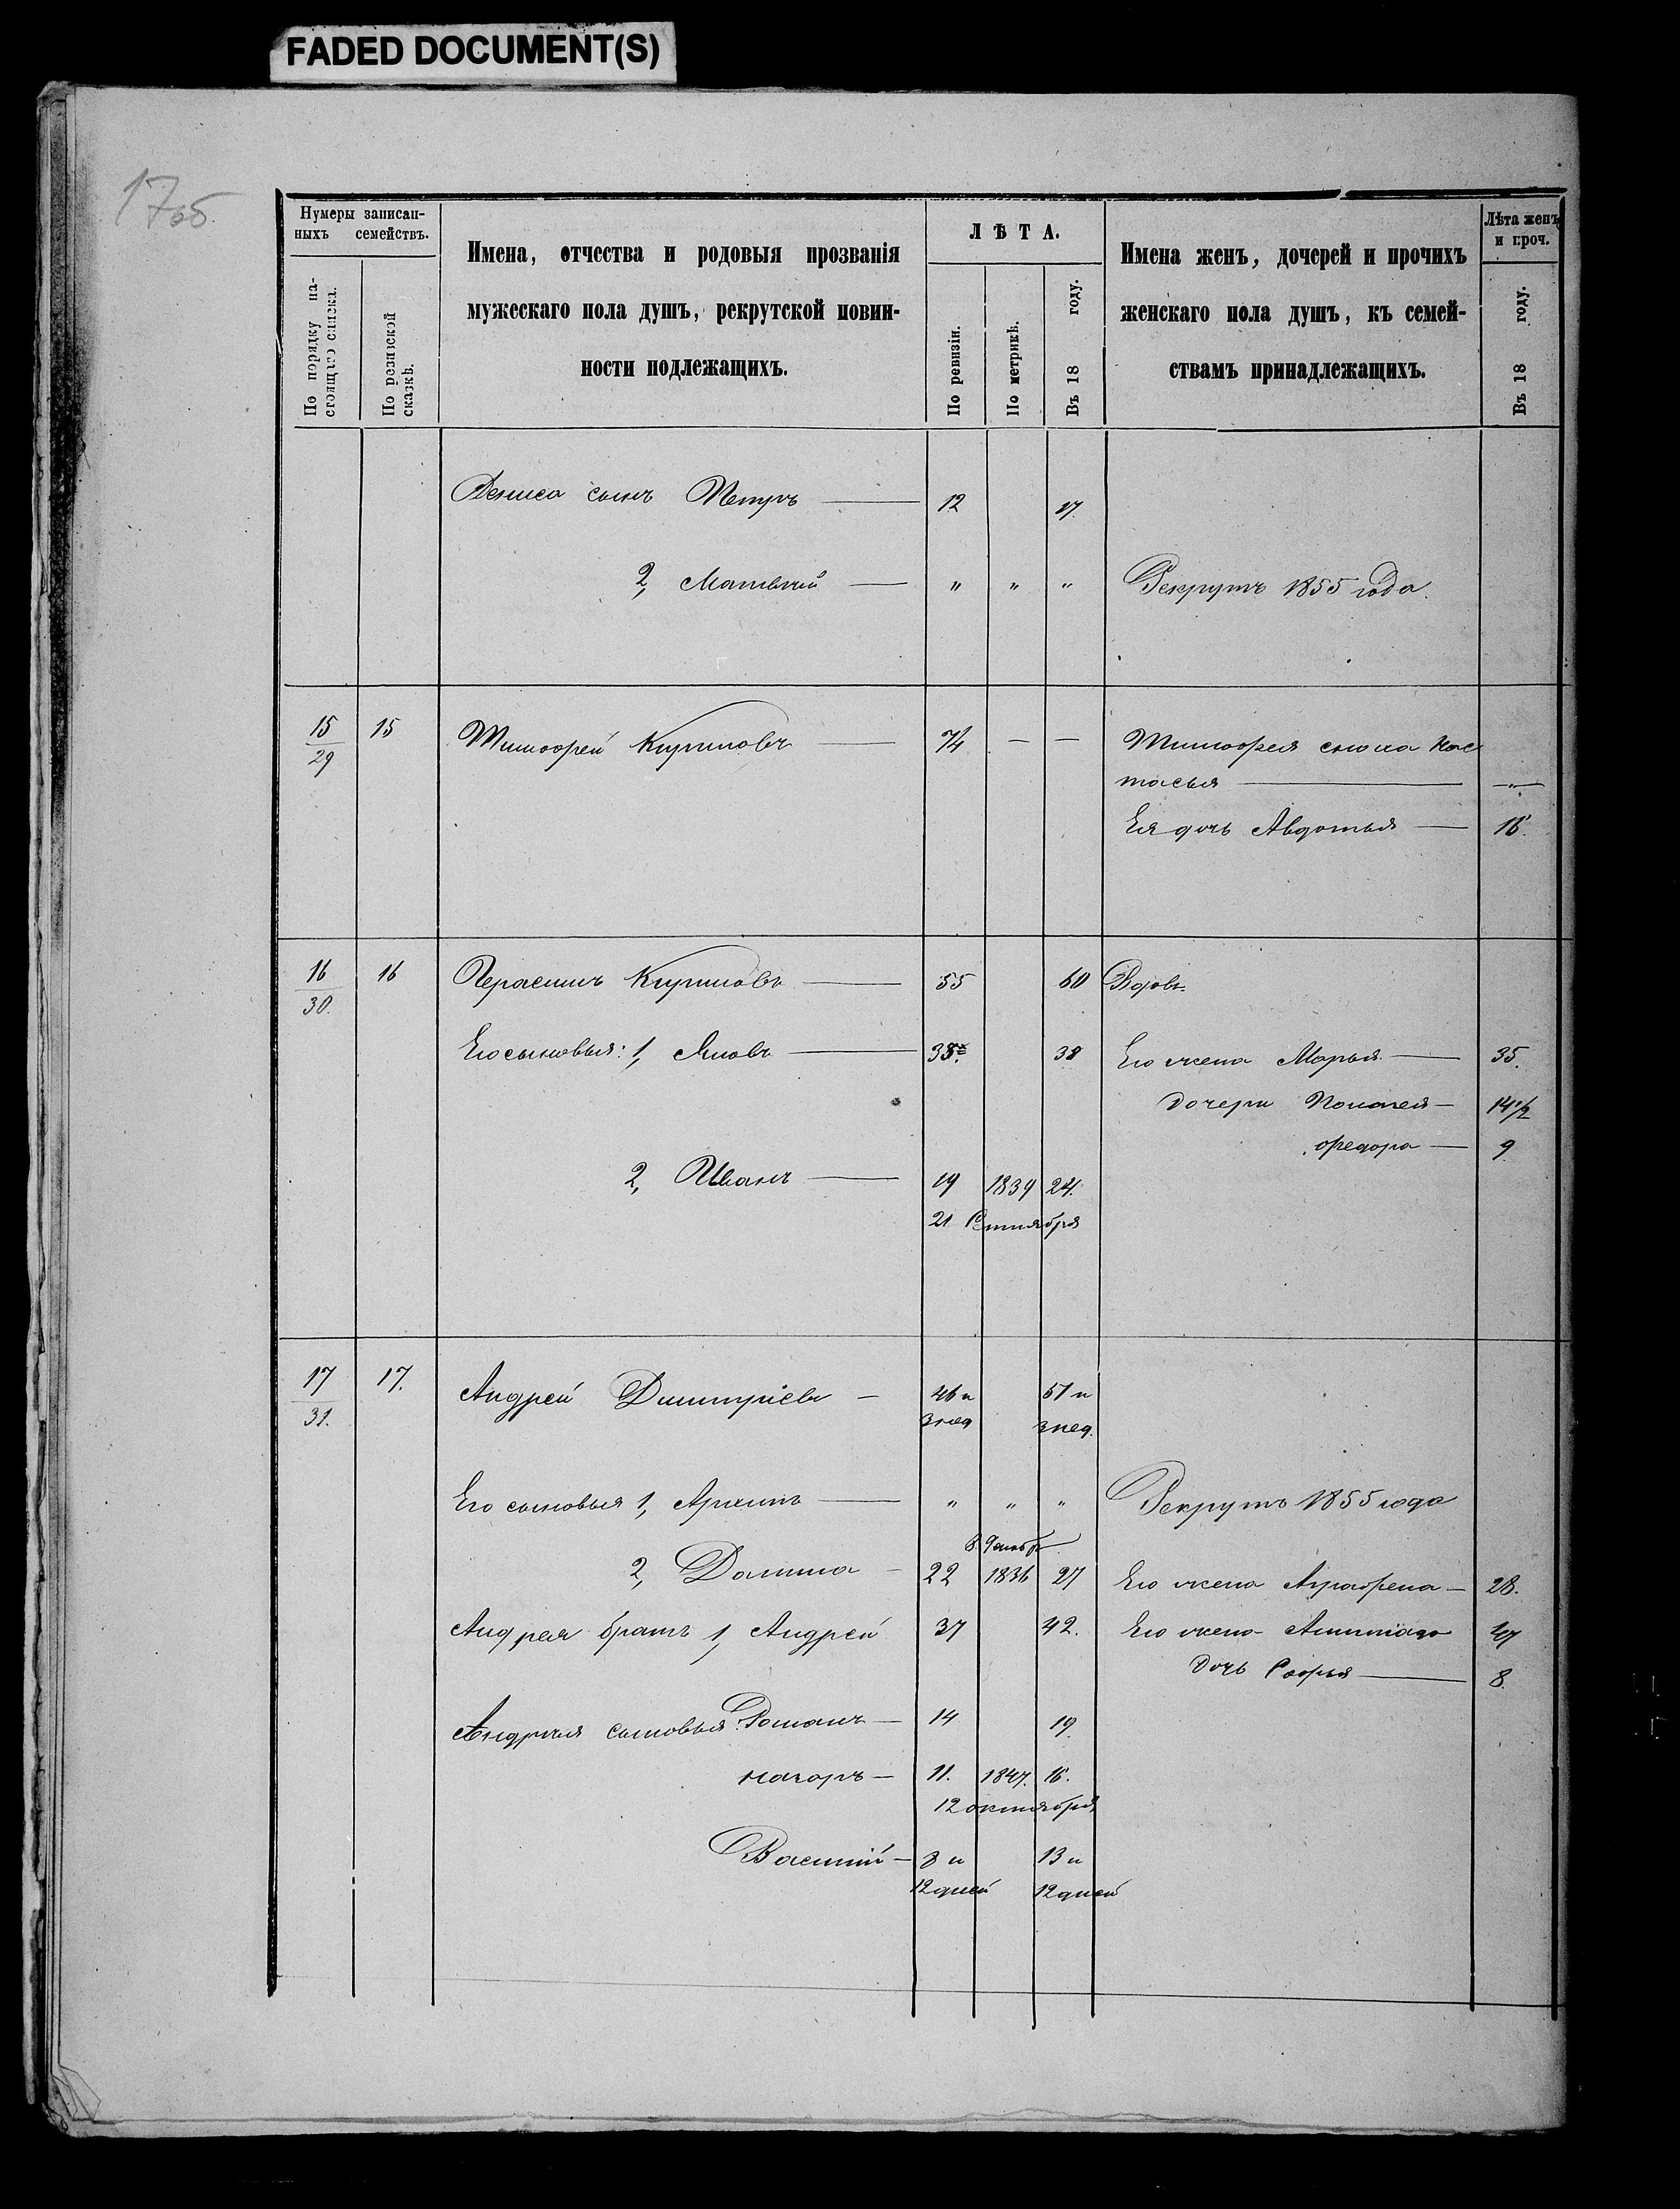 FADED DOCUMENT(S)
17об
Нумеры записан-
ныхъ семействъ.
По порядку на-
стоящаго списка.
По ревизской
сказкѣ.
Имена, отчества и родовыя прозванія
мужескаго пола душъ, рекрутской повин-
ности подлежащихъ.
ЛѢТА.
По ревизіи.
По метрикѣ.
Въ 18 году.
Имена женъ, дочерей и прочихъ
женскаго пола душъ, къ семей-
ствамъ принадлежащихъ.
Лѣта женъ
и проч.
Въ 18 году.
Дениса сынъ Петръ — 12 17.
2, Матвѣй — " " " Рекрутъ 1855 года.
15/29 15 Тимофей Кириловъ — 74 — — Тимофея сноха Нас
тасья — "
Ея дочь Авдотья — 18.
16/30. 16 Герасимъ Кириловъ — 55 60 Вдовъ.
Его сыновья: 1, Яковъ — 33. 38 Его жена Марья — 35.
дочери Пелагея — 14 1/2
Федора — 9
2, Иванъ — 19 1839 24.
21 Сентября
17/31. 17. Андрей Димитріевъ — 46 и 51 и
3 нед 3 нед.
Его сыновья 1, Архипъ — " " " Рекрутъ 1855 года
8 Декабр
2, Данила — 22 1836 27 Его жена Аграфена — 28.
Андрея братъ 1, Андрей 37 42. Его жена 47
дочь Софья — 8.
Андрея сыновья: Романъ — 14 19.
Назаръ — 11. 1847. 16.
12 октября
Василій — 8 и 13 и
12 дней 12 дней